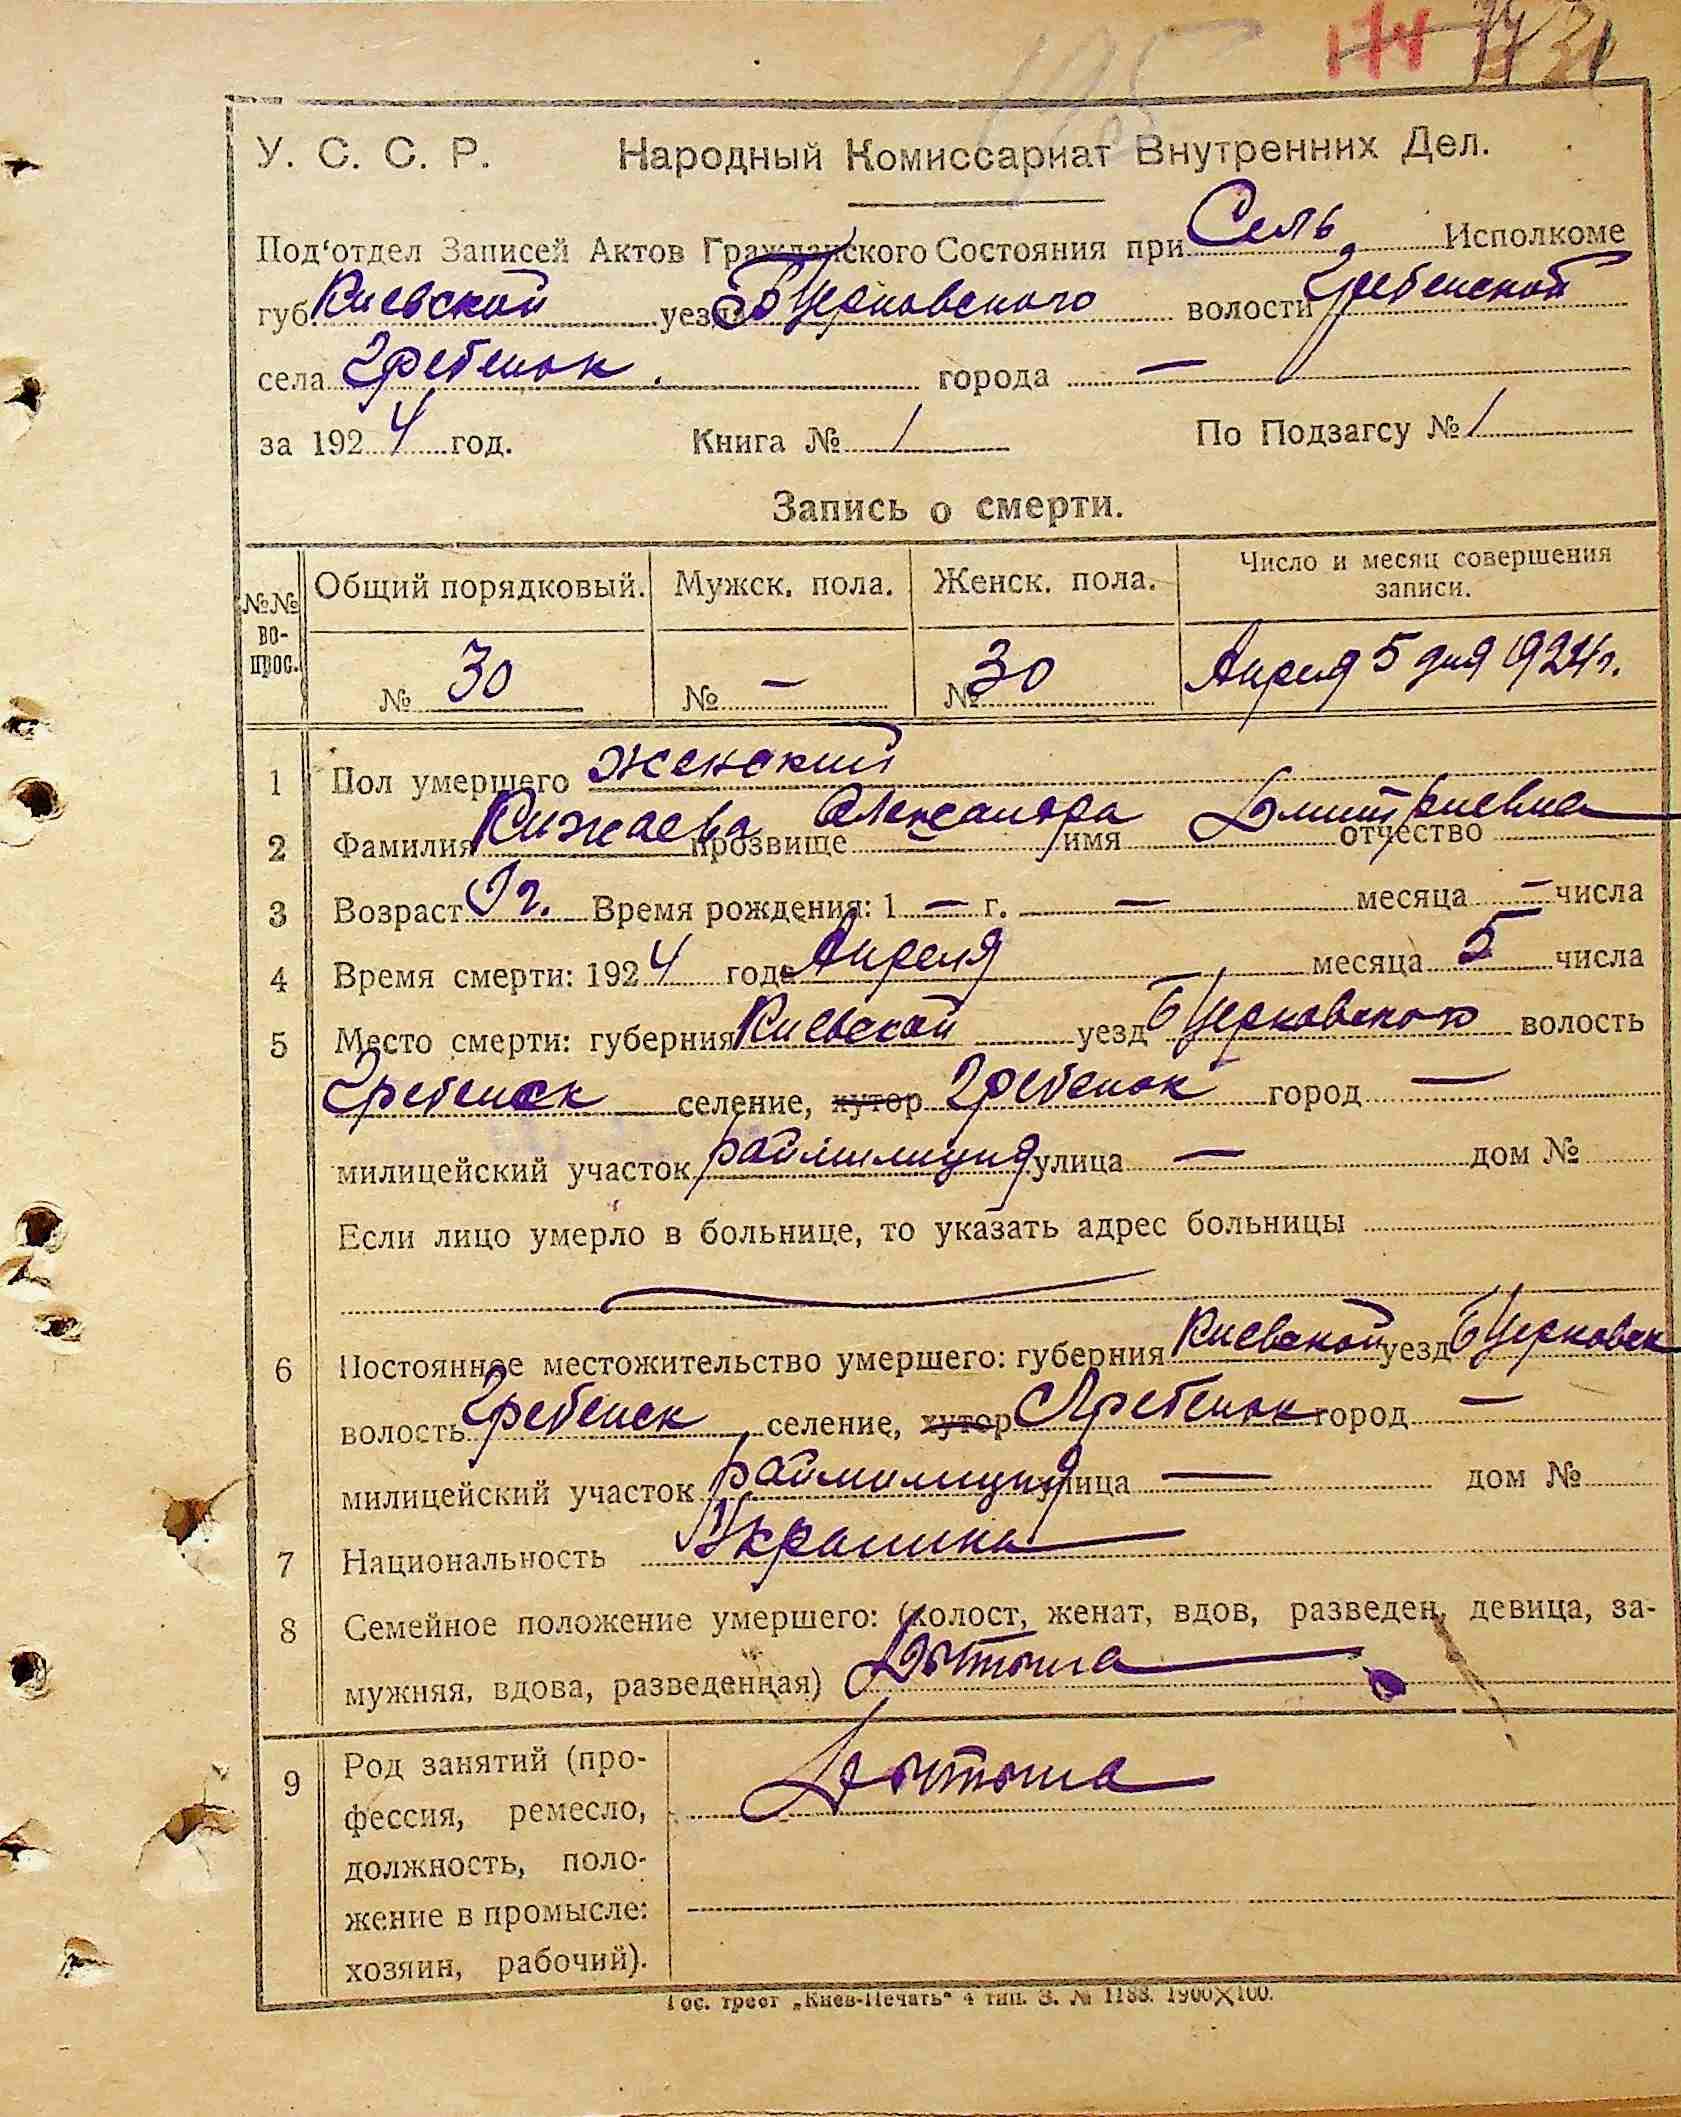 174
У. С. С. Р. Народный Комиссариат Внутренних Дел.
Под'отдел Записей Актов Гражданского Состояния при Сель Исполкоме
губ. Киевской уезда БЦерковского волости Гребенской
села Гребенок. города —
за 1924 год. Книга № 1 По Подзагсу № 1
Запись о смерти.
№№ во- прос. Общий порядковый. Мужск. пола. Женск. пола. Число и месяц совершения записи.
№ 30 № — № 30 Апреля 5 дня 1924 г.
1 Пол умершего женский
2 Фамилия Кижаева прозвище Александра имя Дмитриевна отчество
3 Возраст г. Время рождения: 1 — г. — месяца — числа
4 Время смерти: 1924 года Апреля месяца 5 числа
5 Место смерти: губерния Киевской уезд БЦерковского волость
Гребенск селение, хутор Гребенок город —
милицейский участок раймилиция улица — дом №
Если лицо умерло в больнице, то указать адрес больницы
6 Постоянное местожительство умершего: губерния Киевской уезд БЦерковск
волость Гребенск селение, хутор Гребенок город —
милицейский участок раймилиция улица — дом №
7 Национальность Украинка
8 Семейное положение умершего: (холост, женат, вдов, разведен, девица, за-
мужняя, вдова, разведенная) Дытына
9 Род занятий (про- Дытына
фессия, ремесло,
должность, поло-
жение в промысле:
хозяин, рабочий).
Гос. трест „Киев-Печать" 4 тип. З. № 1188. 1900×100.